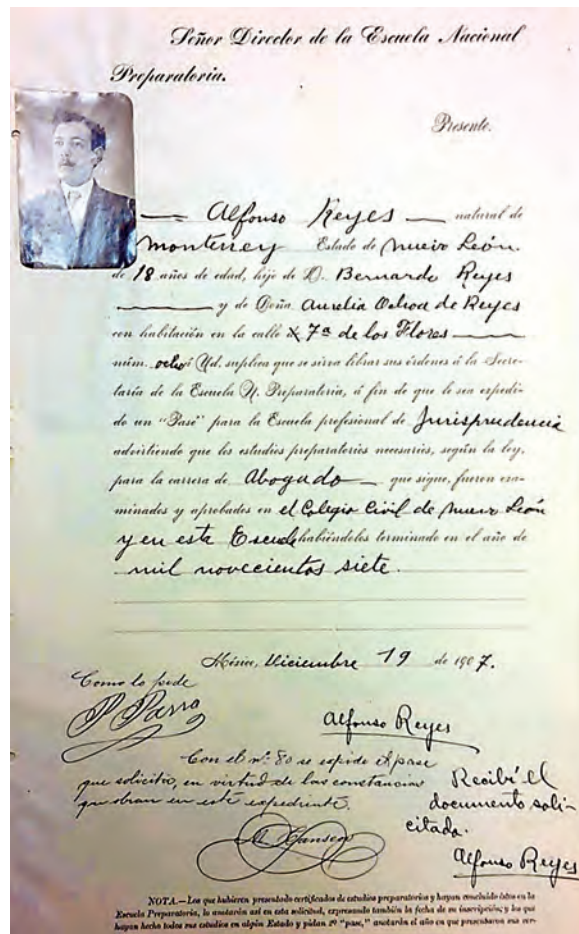 Señor Director de la Escuela Nacional
Preparatoria.
Presente.
Alfonso Reyes natural de
Monterrey Estado de Nuevo León
de 18 años de edad, hijo de D. Bernardo Reyes
y de Doña Aurelia Ochoa de Reyes
con habitación en la calle 7a de los Flores
núm. ocho á Ud. suplica que se sirva librar sus órdenes á la Secre-
taría de la Escuela N. Preparatoria, á fin de que le sea expedi-
do un "Pase" para la Escuela profesional de Jurisprudencia
advirtiendo que los estudios preparatorios necesarios, según la ley,
para la carrera de Abogado que sigue, fueron exa-
minados y aprobados en el Colegio Civil de Nuevo León
y en esta Escuela habiéndolos terminado en el año de
mil novecientos siete.
México, Diciembre 19 de 1907.
Como lo pide
P. Parra
Alfonso Reyes
Con el nº 80 se expide el pase
que solicita, en virtud de las constancias
que obran en este expediente.
Recibí el
documento soli-
citado.
Alfonso Reyes
NOTA.—Los que hubieren presentado certificados de estudios preparatorios y hayan concluido éstos en la
Escuela Preparatoria, lo anotarán así en esta solicitud, expresando también la fecha de su inscripción; y los que
hayan hecho todos sus estudios en algún Estado y pidan "pase," anotarán el año en que presentaron sus cer-